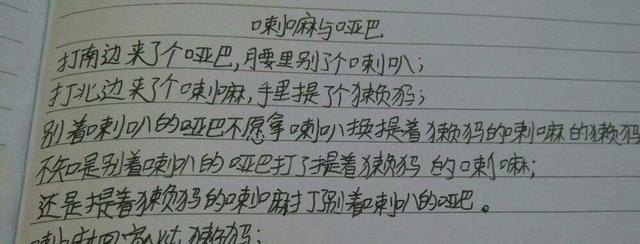 喇嘛与哑巴
打南边来了个哑巴,腰里别了个喇叭;
打北边来了个喇嘛,手里提了个獭犸;
别着喇叭的哑巴不愿拿喇叭换提着獭犸的喇嘛的獭犸
不知是别着喇叭的哑巴打了提着獭犸的喇嘛;
还是提着獭犸的喇嘛打了别着喇叭的哑巴。
喇嘛回家炖獭犸;